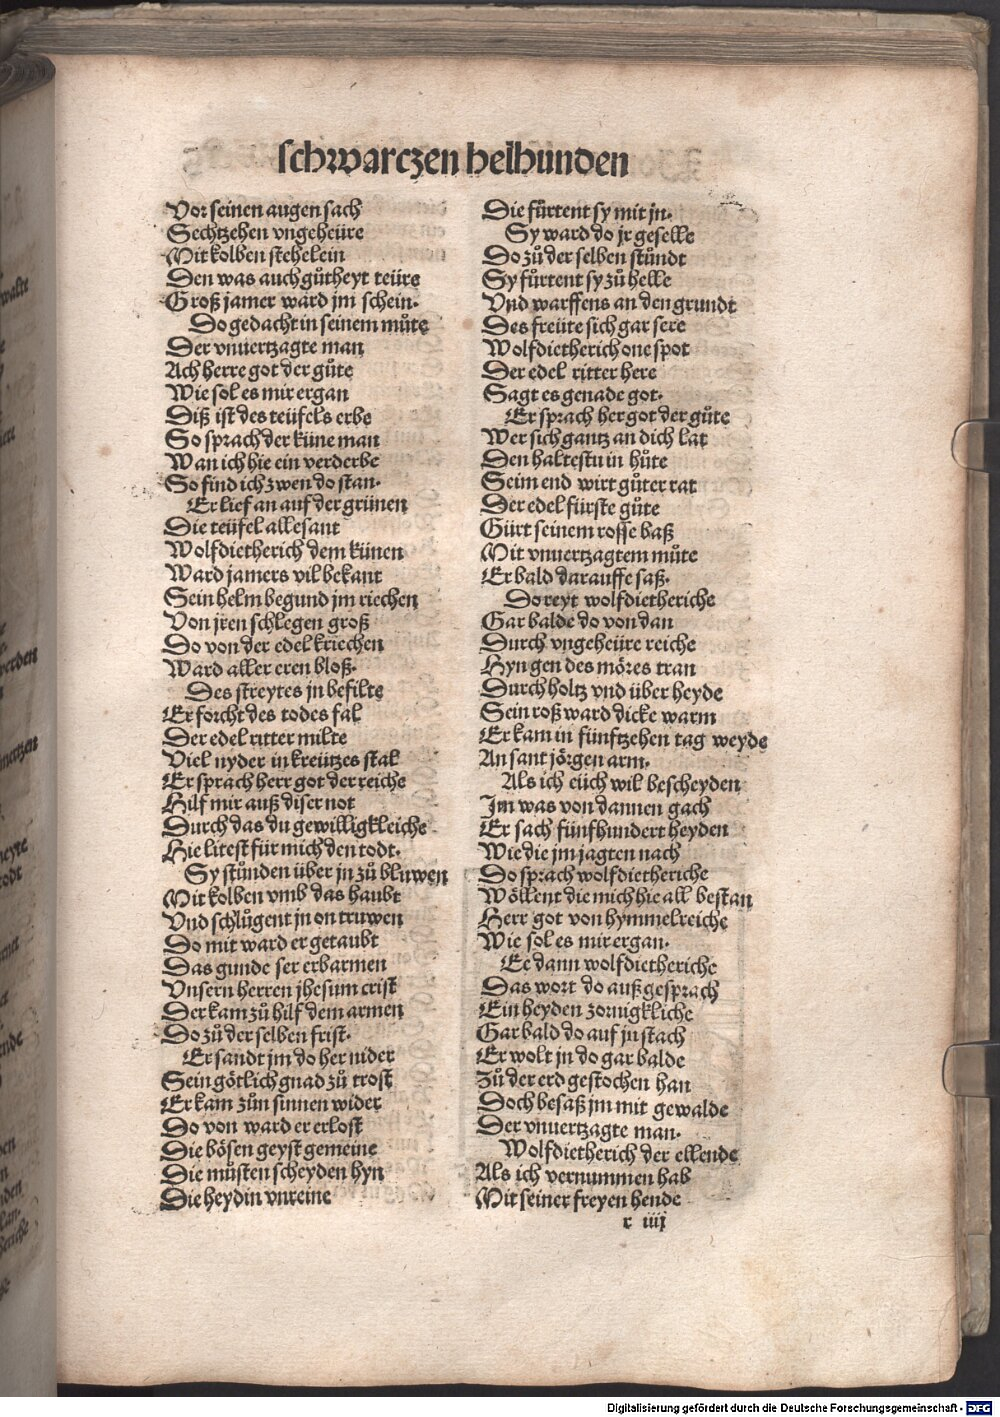 schwarczen helhunden
Vor seinen augen sach
Sechtzehen vngeheüre
Mit kolben stehelein
Den was auch gůtheyt teüre
Groß jamer ward jm schein.
Do gedacht in seinem můte
Der vnuertzagte man
Ach herre got der gůte
Wie sol es mir ergan
Diß ist des teüfels erbe
So sprach der küne man
Wan ich hie ein verderbe
So find ich zwen do stan.
Er lief an auf der grünen
Die teüfel allesant
Wolfdietherich dem künen
Ward jamers vil bekant
Sein helm begund jm riechen
Von jren schlegen groß
Do von der edel kriechen
Ward aller eren bloß.
Des streytes jn befilte
Er forcht des todes fal
Der edel ritter milte
Viel nyder in kreützes stal
Er sprach herr got der reiche
Hilf mir auß diser not
Durch das du gewilligkleiche
Hie litest für mich den todt.
Sy stůnden über jn zů bluwen
Mit kolben vmb das haubt
Vnd schlůgent jn on truwen
Do mit ward er getaubt
Das gunde ser erbarmen
Vnsern herren jhesum crist
Der kam zů hilf dem armen
Do zů der selben frist.
Er sandt jm do her nider
Sein götlich gnad zů trost
Er kam zůn sinnen wider
Do von ward er erlost
Die bösen geyst gemeine
Die můsten scheyden hyn
Die heydin vnreine
Die fůrtent sy mit jn.
Sy ward do jr geselle
Do zů der selben stůndt
Sy fůrtent sy zů helle
Vnd warffens an den grundt
Des freüte sich gar sere
Wolfdietherich one spot
Der edel ritter here
Sagt es genade got.
Er sprach her got der gůte
Wer sich gantz an dich lat
Den haltestu in hůte
Seim end wirt gůter rat
Der edel fürste gůte
Gürt seinem rosse baß
Mit vnuertzagtem můte
Er bald darauffe saß.
Do reyt wolfdietheriche
Gar balde do von dan
Durch vngeheüre reiche
Hyn gen des möres tran
Durch holtz vnd über heyde
Sein roß ward dicke warm
Er kam in fünftzehen tag weyde
An sant jörgen arm.
Als ich eüch wil bescheyden
Im was von dannen gach
Er sach fünfhundert heyden
Wie die jm jagten nach
Do sprach wolfdietheriche
Wöllent die mich hie all bestan
Herr got von hymmelreiche
Wie sol es mir ergan.
Ee dann wolfdietheriche
Das wort do auß gesprach
Ein heyden zornigkliche
Gar bald do auf jn stach
Er wolt jn do gar balde
Zů der erd gestochen han
Doch besaß jm mit gewalde
Der vnuertzagte man.
Wolfdietherich der ellende
Als ich vernummen hab
Mit seiner freyen hende
r iiij
Digitalisierung gefördert durch die Deutsche Forschungsgemeinschaft - DFG